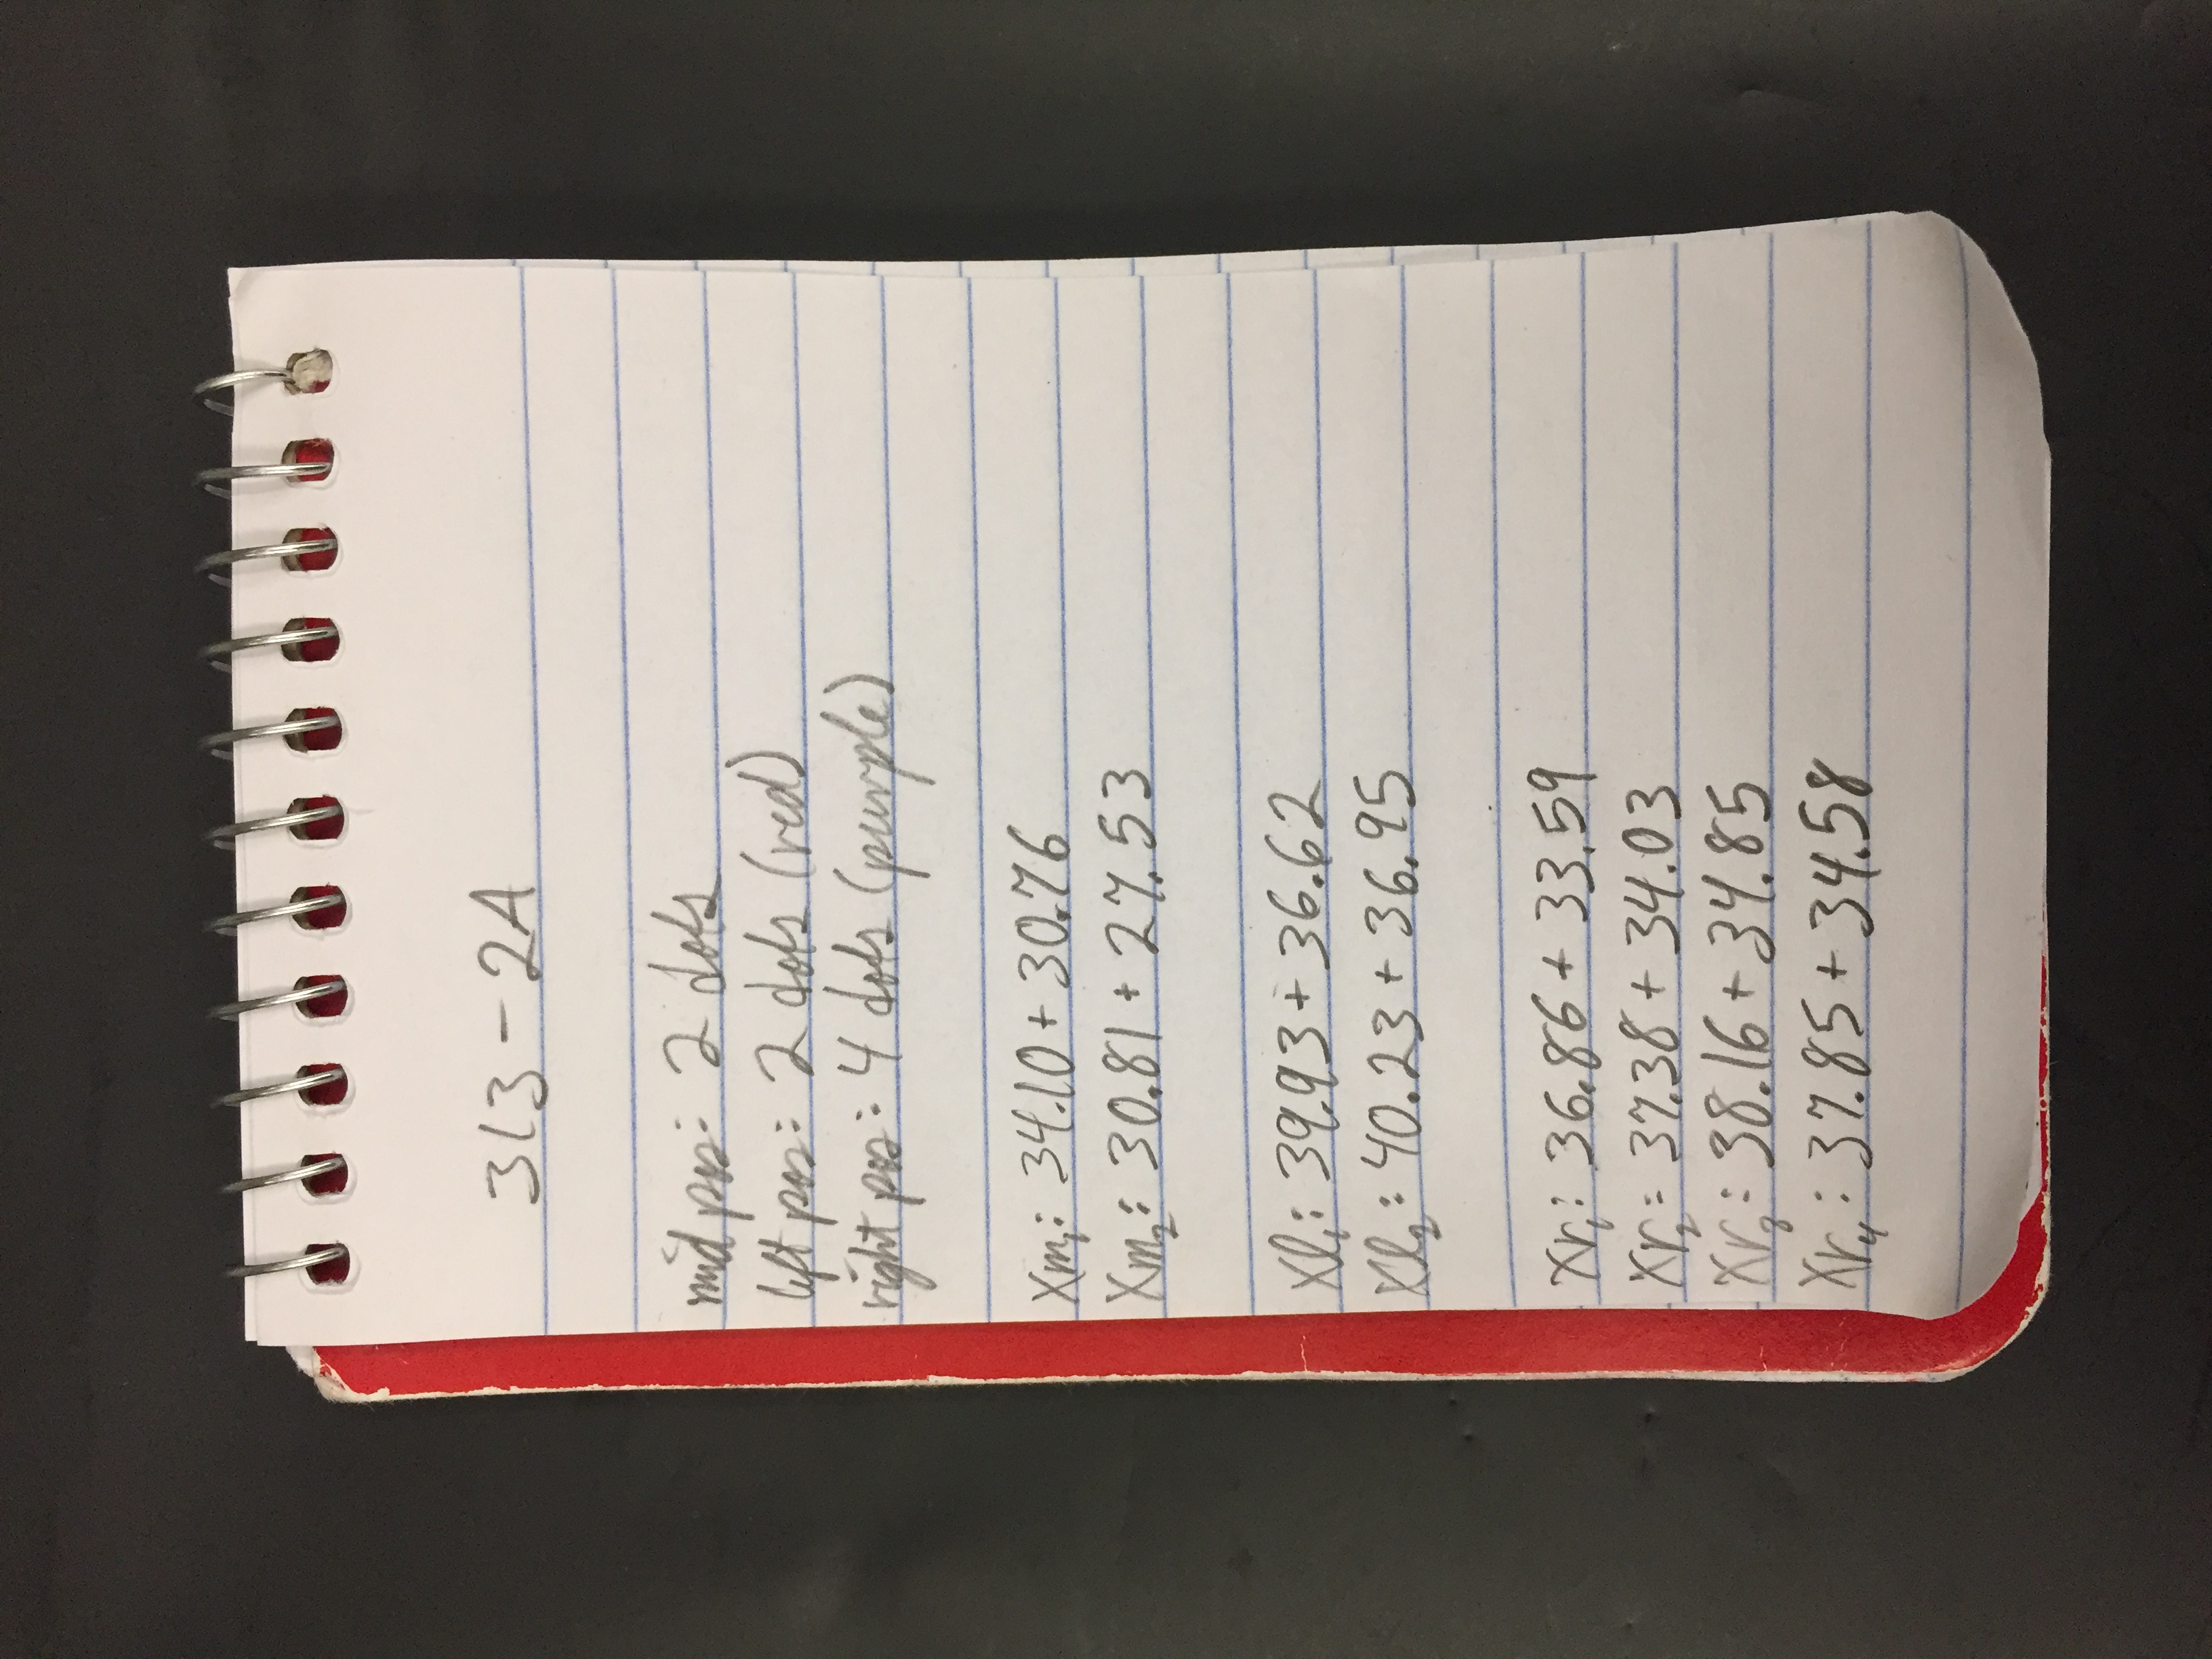 313-2A
mid pos: 2 dots
left pos: 2 dots (red)
right pos: 4 dots (purple)
Xm₁: 34.10 + 30.76
Xm₂: 30.81 + 27.53
Xl₁: 39.93 + 36.62
Xl₂: 40.23 + 36.95
Xr₁: 36.86 + 33.59
Xr₂: 37.38 + 34.03
Xr₃: 38.16 + 34.85
Xr₄: 37.85 + 34.58